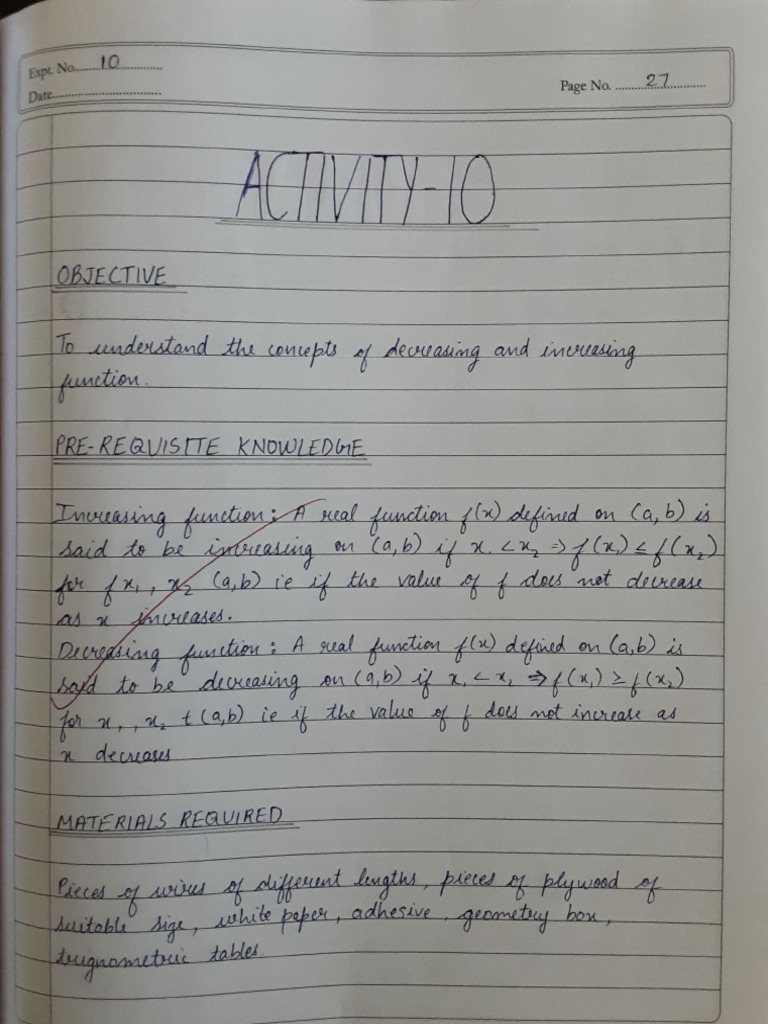 Expt. No. 10
Date
Page No. 27
ACTIVITY-10
OBJECTIVE
To understand the concepts of decreasing and increasing
function.
PRE-REQUISITE KNOWLEDGE
Increasing function: A real function f(x) defined on (a,b) is
said to be increasing on (a,b) if x₁ < x₂ ⇒ f(x₁) ≤ f(x₂)
for f x₁, x₂ (a,b) ie if the value of f does not decrease
as x increases.
Decreasing function: A real function f(x) defined on (a,b) is
said to be decreasing on (a,b) if x₁ < x₂ ⇒ f(x₁) ≥ f(x₂)
for x₁, x₂ t (a,b) ie if the value of f does not increase as
x decreases
MATERIALS REQUIRED
Pieces of wires of different lengths, pieces of plywood of
suitable size, white paper, adhesive, geometry box,
trignometric tables.